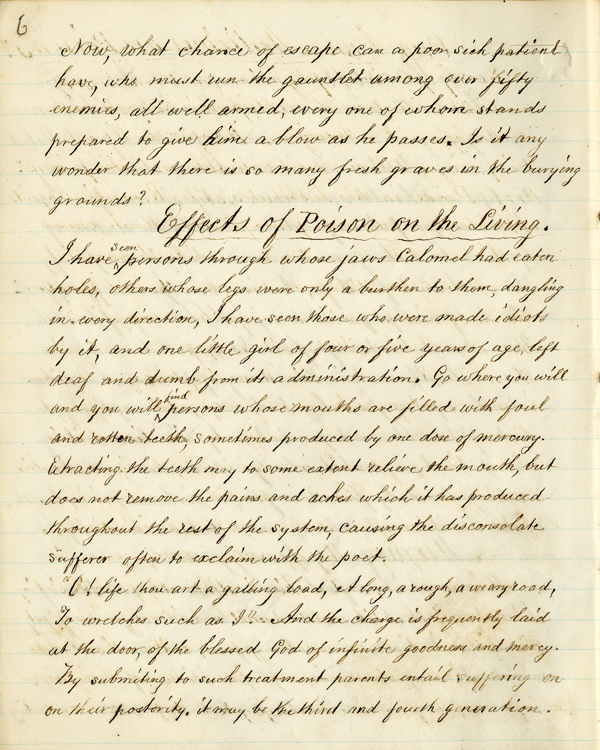 6
Now, what chance of escape can a poor sick patient
have, who must run the gauntlet among over fifty
enemies, all well armed, every one of whom stands
prepared to give him a blow as he passes. Is it any
wonder that there is so many fresh graves in the burying
grounds?
Effects of Poison on the Living.
I have seen persons through whose jaws Calomel had eaten
holes, others whose legs were only a burthen to them, dangling
in every direction, I have seen those who were made idiots
by it, and one little girl of four or five years of age, left
deaf and dumb from its administration. Go where you will
and you will find persons whose mouths are filled with foul
and rotten teeth, sometimes produced by one dose of mercury.
Extracting the teeth may to some extent relieve the mouth, but
does not remove the pains and aches which it has produced
throughout the rest of the system, causing the disconsolate
sufferer often to exclaim with the poet.
"O! life thou art a galling load, A long, a rough, a weary road,
To wretches such as I". And the charge is frequently laid
at the door, of the blessed God of infinite goodness and mercy.
By submiting to such treatment parents entail suffering on
on their postority. it may be the third and fourth generation.